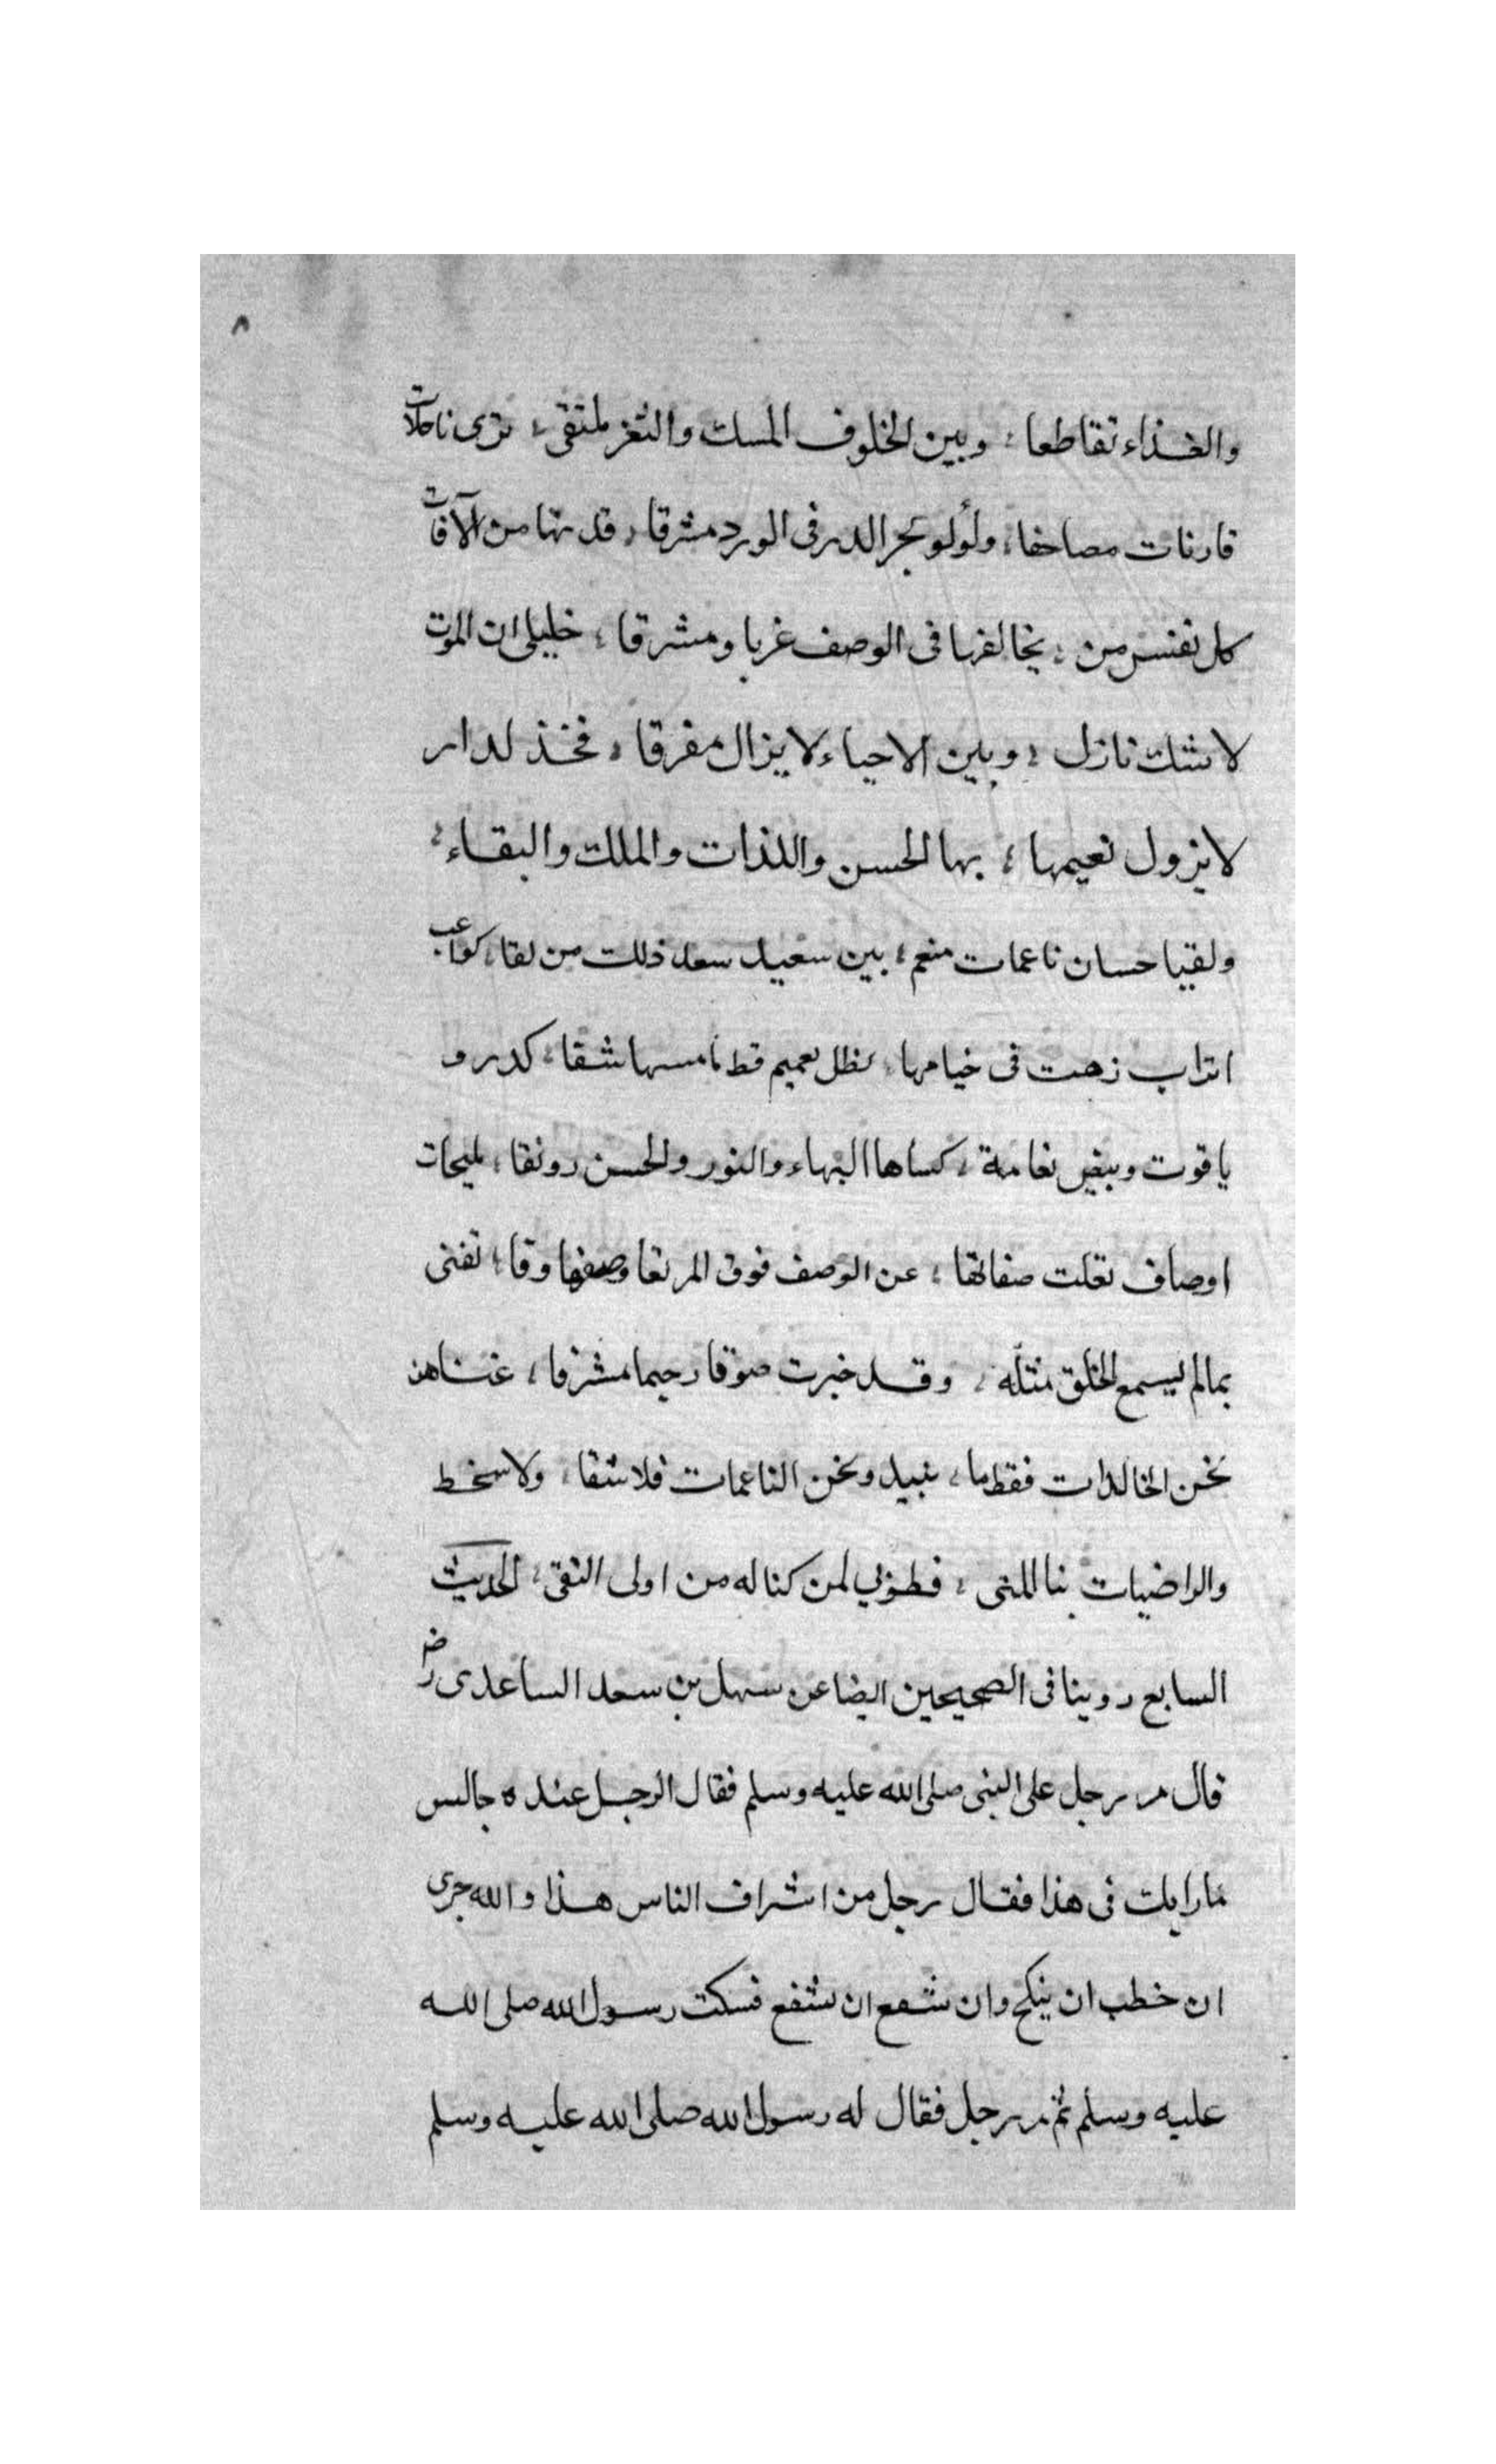 ٨
والغذاء تقاطعا ؛ وبين الخلوف المسك والثغر ملتقى ؛ ترى ناحلات
قارنات مصاحفا ؛ ولؤلؤ بحر الدر فى الورد مشرقا ؛ من الآفات
كل نفس من ؛ يخالفها فى الوصف غربا ومشرقا ؛ خليلى ان الموت
لا شك نازل ؛ وبين الاحباء لا يزال مفرقا ؛ فخذ لدار
لا يزول نعيمها ؛ بها الحسن واللذات والملك والبقاء ؛
ولقيا حسان ناعمات منعم ؛ بين سعيد سعد ذلك من لقا ؛ كواعب
اتراب زهت فى خيامها ؛ بظل نعيم قط ما مسها شقا ؛ كدر و
ياقوت وبيض نعامة ؛ كساها البهاء والنور والحسن رونقا ؛ مليحات
اوصاف تعلت صفاتها ؛ عن الوصف فوق وصفها وقا ؛ تغنى
بما لم يسمع الخلق مثله ؛ وقد خبرت صوتا رخيما مشرفا ؛ غناهن
نحن الخالدات فقط ما ؛ نبيد ونحن الناعمات فلا شقا ؛ ولا سخط
والراضيات بنا المنى ؛ فطوبى لمن كنا له من اولى التقى ؛ الحديث
السابع روينا فى الصحيحين ايضا عن سهل بن سعد الساعدى رض
قال مر رجل على النبى صلى الله عليه وسلم فقال الرجل عنده جالس
ما رايك فى هذا فقال رجل من اشراف الناس هذا والله حرى
ان خطب ان ينكح وان شفع ان يشفع فسكت رسول الله صلى الله
عليه وسلم ثم مر رجل فقال له رسول الله صلى الله عليه وسلم